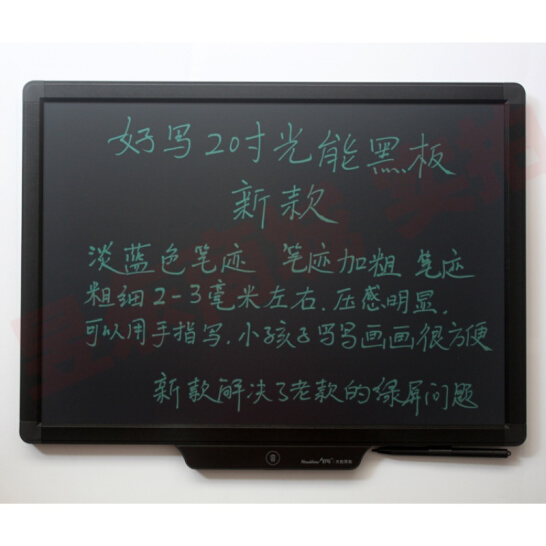 好写20寸光能黑板
新款
淡蓝色笔迹 笔迹加粗 笔迹
粗细2-3毫米左右.压感明显,
可以用手指写.小孩子写写画画很方便
新款解决了老款的绿屏问题